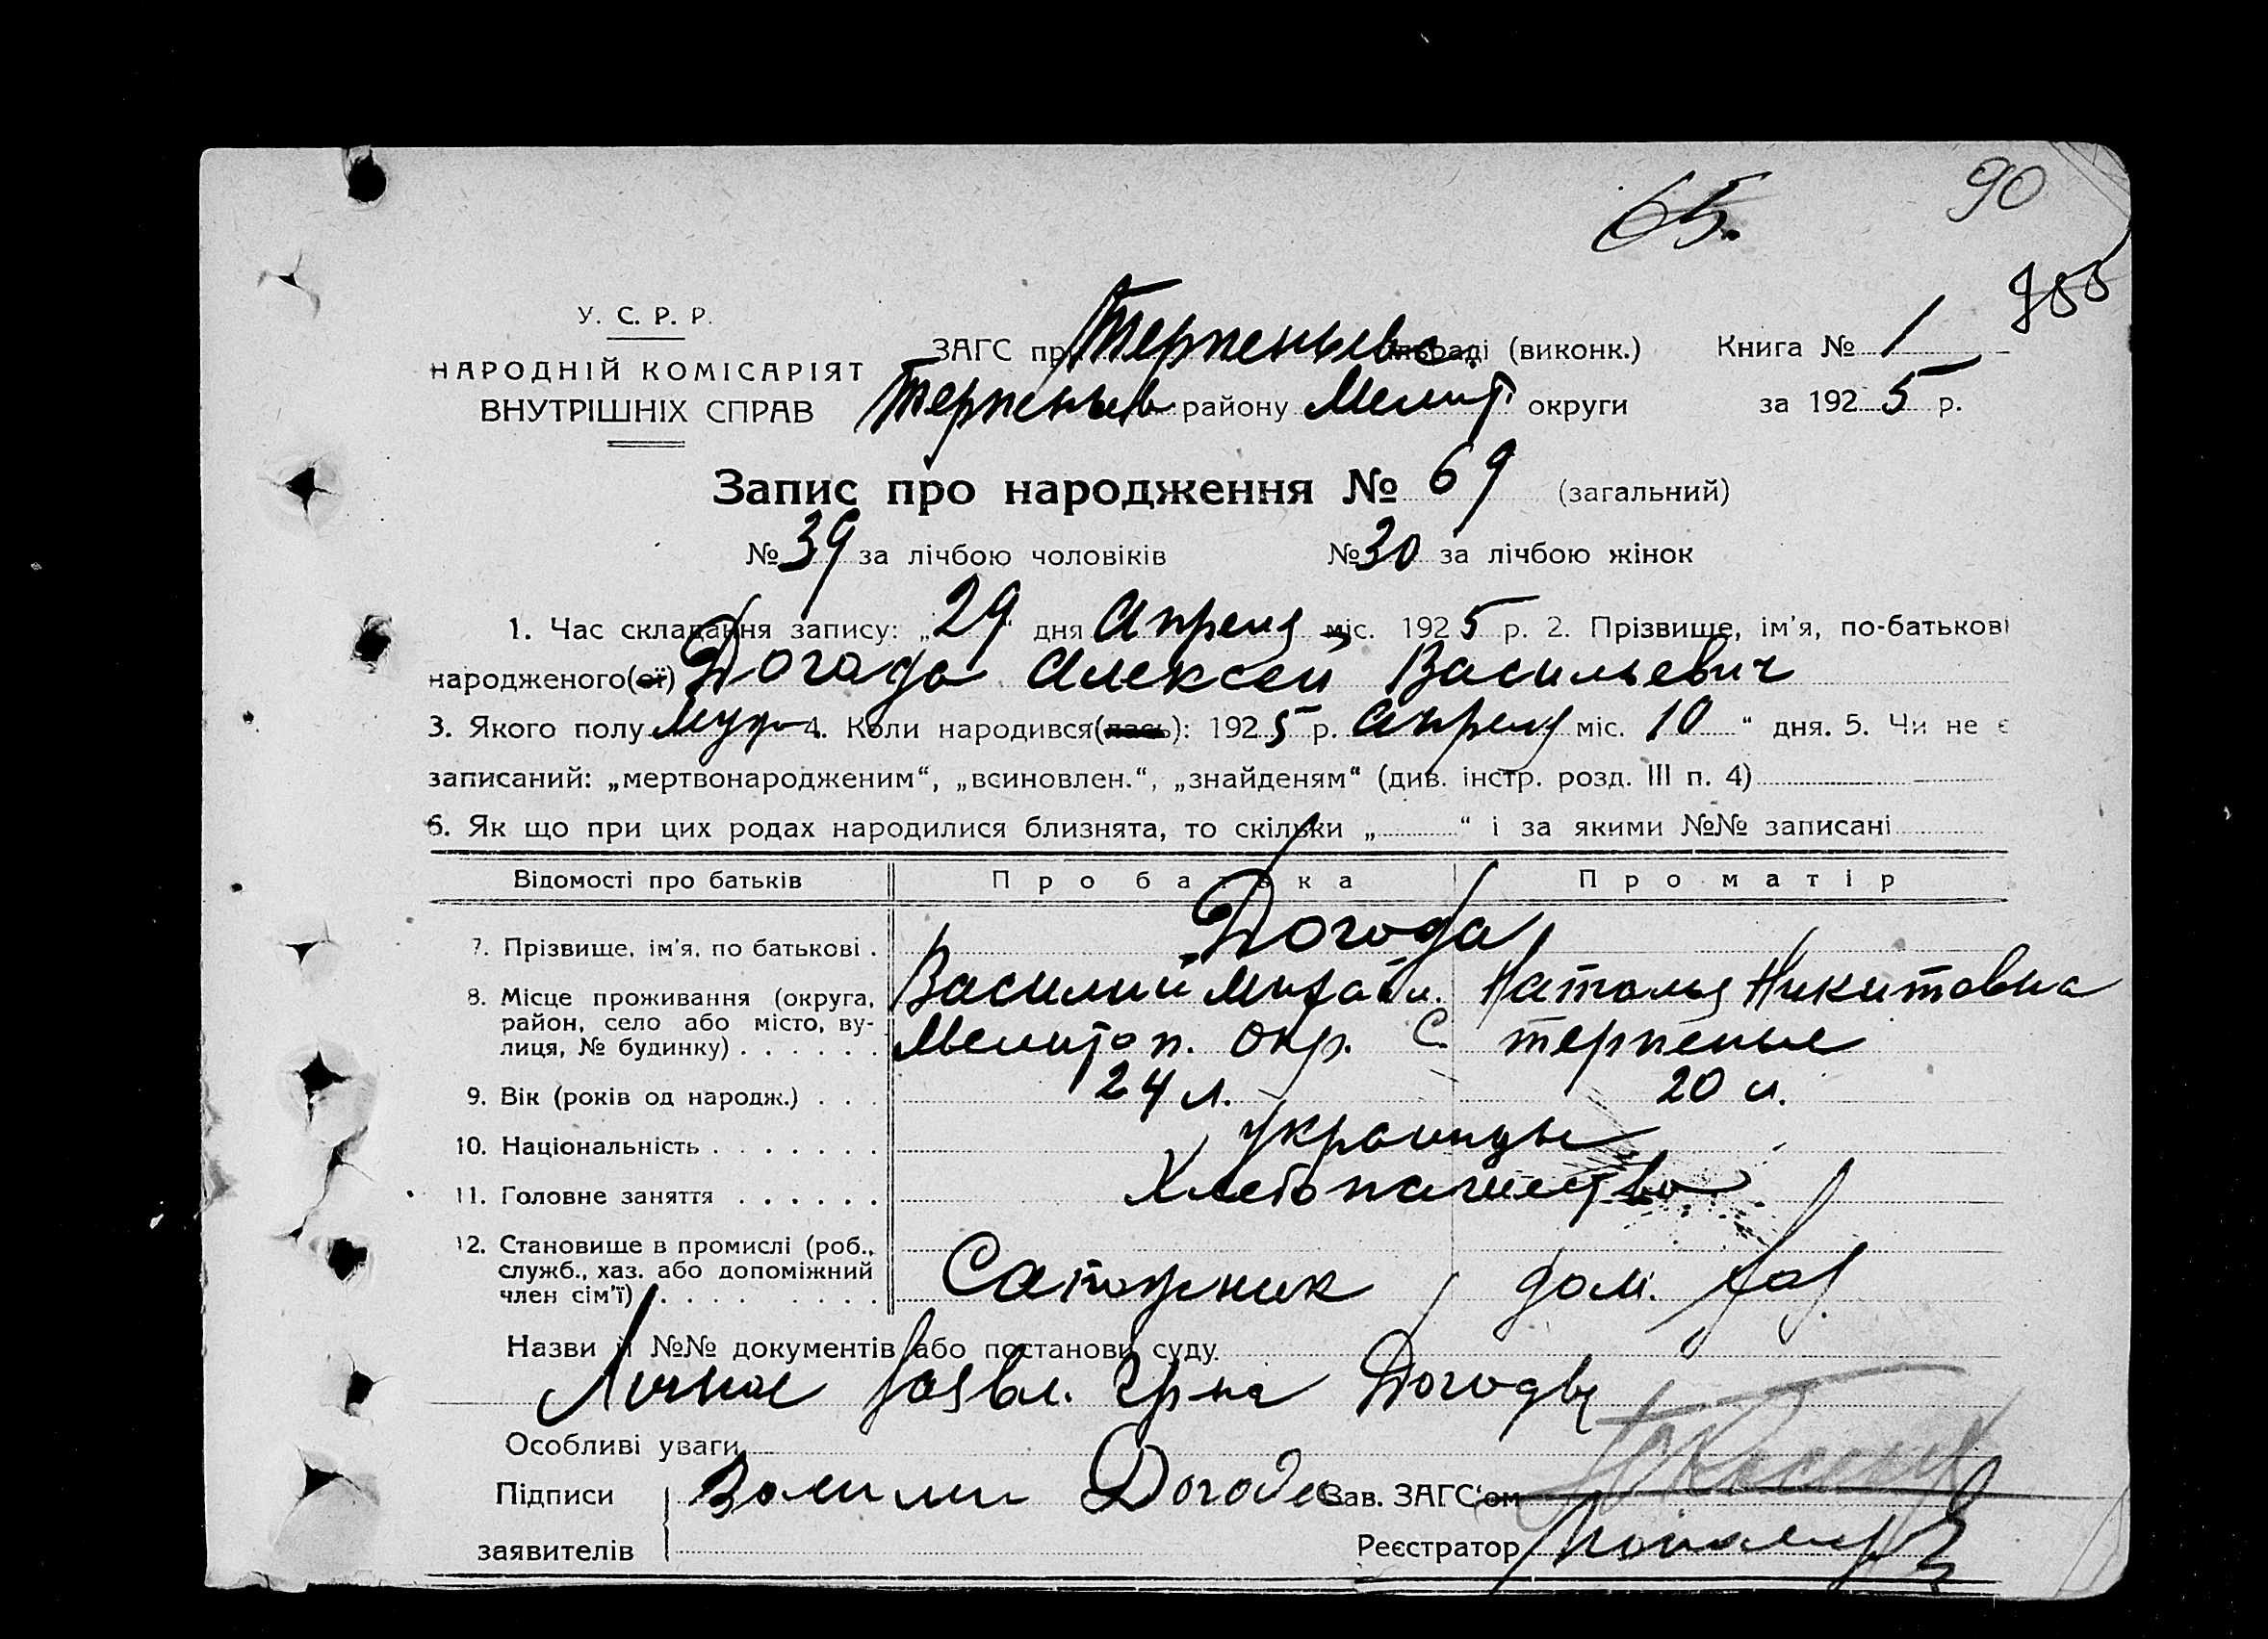 65.
90
955
У. С. Р. Р.
НАРОДНІЙ КОМІСАРІЯТ
ВНУТРІШНІХ СПРАВ
ЗАГС при Терпеньевс. сільраді (виконк.) Книга № 1
Терпеньев районy Мелит. округи за 1925 р.
Запис про народження № 69 (загальний)
№ 39 за лічбою чоловіків № 30 за лічбою жінок
1. Час складання запису: „29“ дня Апреля міс. 1925 р. 2. Прізвище, ім'я, по-батькові
народженого(ої) Догода Алексей Васильевич
3. Якого полу муж 4. Коли народився(лась): 1925 р. Апреля міс. 10 “ дня. 5. Чи не є
записаний: „мертвонародженим“, „всиновлен.“, „знайденям“ (див. інстр. розд. III п. 4)
6. Як що при цих родах народилися близнята, то скільки „ “ і за якими №№ записані
Відомості про батьків Про батька Про матір
Догода
7. Прізвище, ім'я, по батькові . Василий Михайл. Наталья Никитовна
8. Місце проживання (округа, район, село або місто, вулиця, № будинку) . . . . . . Мелитоп. окр. С. терпенье
9. Вік (років од народж.) . . . 24 л. 20 л.
10. Національність . . . . . . . украинцы
11. Головне заняття . . . . . . Хлебопашество
12. Становище в промислі (роб., служб., хаз. або допоміжний член сім'ї) . . . . . . . . Сапожник , дом. хоз.
Назви й №№ документів або постанови суду
Личное заявл. гр-на Догоды
Особливі уваги
Підписи Василий Догода Зав. ЗАГС'ом
заявителів Реєстратор